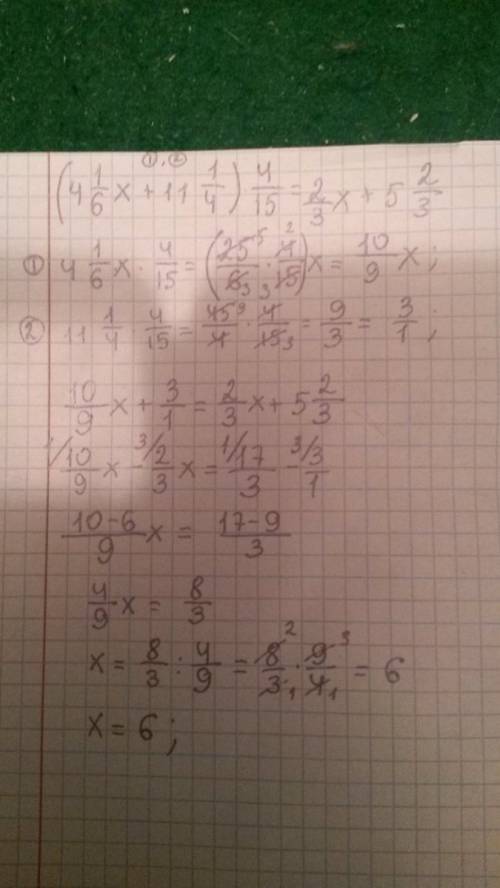 (4 1/6 x + 11 1/4) 4/15 = 2/3 x + 5 2/3
① 4 1/6 x · 4/15 = (25/6 · 4/15) x = 10/9 x;
② 11 1/4 · 4/15 = 45/4 · 4/15 = 9/3 = 3/1;
10/9 x + 3/1 = 2/3 x + 5 2/3
10/9 x - 2/3 x = 17/3 - 3/1
10-6/9 x = 17-9/3
4/9 x = 8/3
x = 8/3 : 4/9 = 8/3 · 9/4 = 6
x = 6;